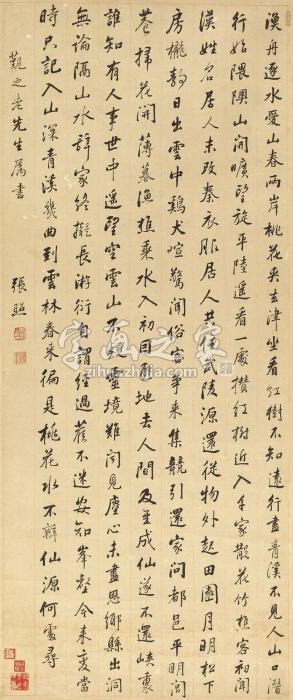 漁舟逐水愛山春兩岸桃花夾去津坐看紅樹不知遠行盡青溪不見人山口潛
行始隈隩山開曠望旋平陸遙看一處攢紅樹近入千家散花竹樵客初聞
漢姓名居人未改秦衣服居人共住武陵源還從物外起田園月明松下
房櫳靜日出雲中鷄犬喧驚聞俗客爭來集競引還家問都邑平明閭
巷掃花開薄暮漁樵乘水入初因避地去人間及至成仙遂不還峽裏
誰知有人事世中遙望空雲山不疑靈境難聞見塵心未盡思鄉縣出洞
無論隔山水辭家終擬長游衍自謂經過舊不迷安知峯壑今來變當
時只記入山深青溪幾曲到雲林春來徧是桃花水不辨仙源何處尋
覲之老先生屬書 張照
字画之家
zihuazhijia.com